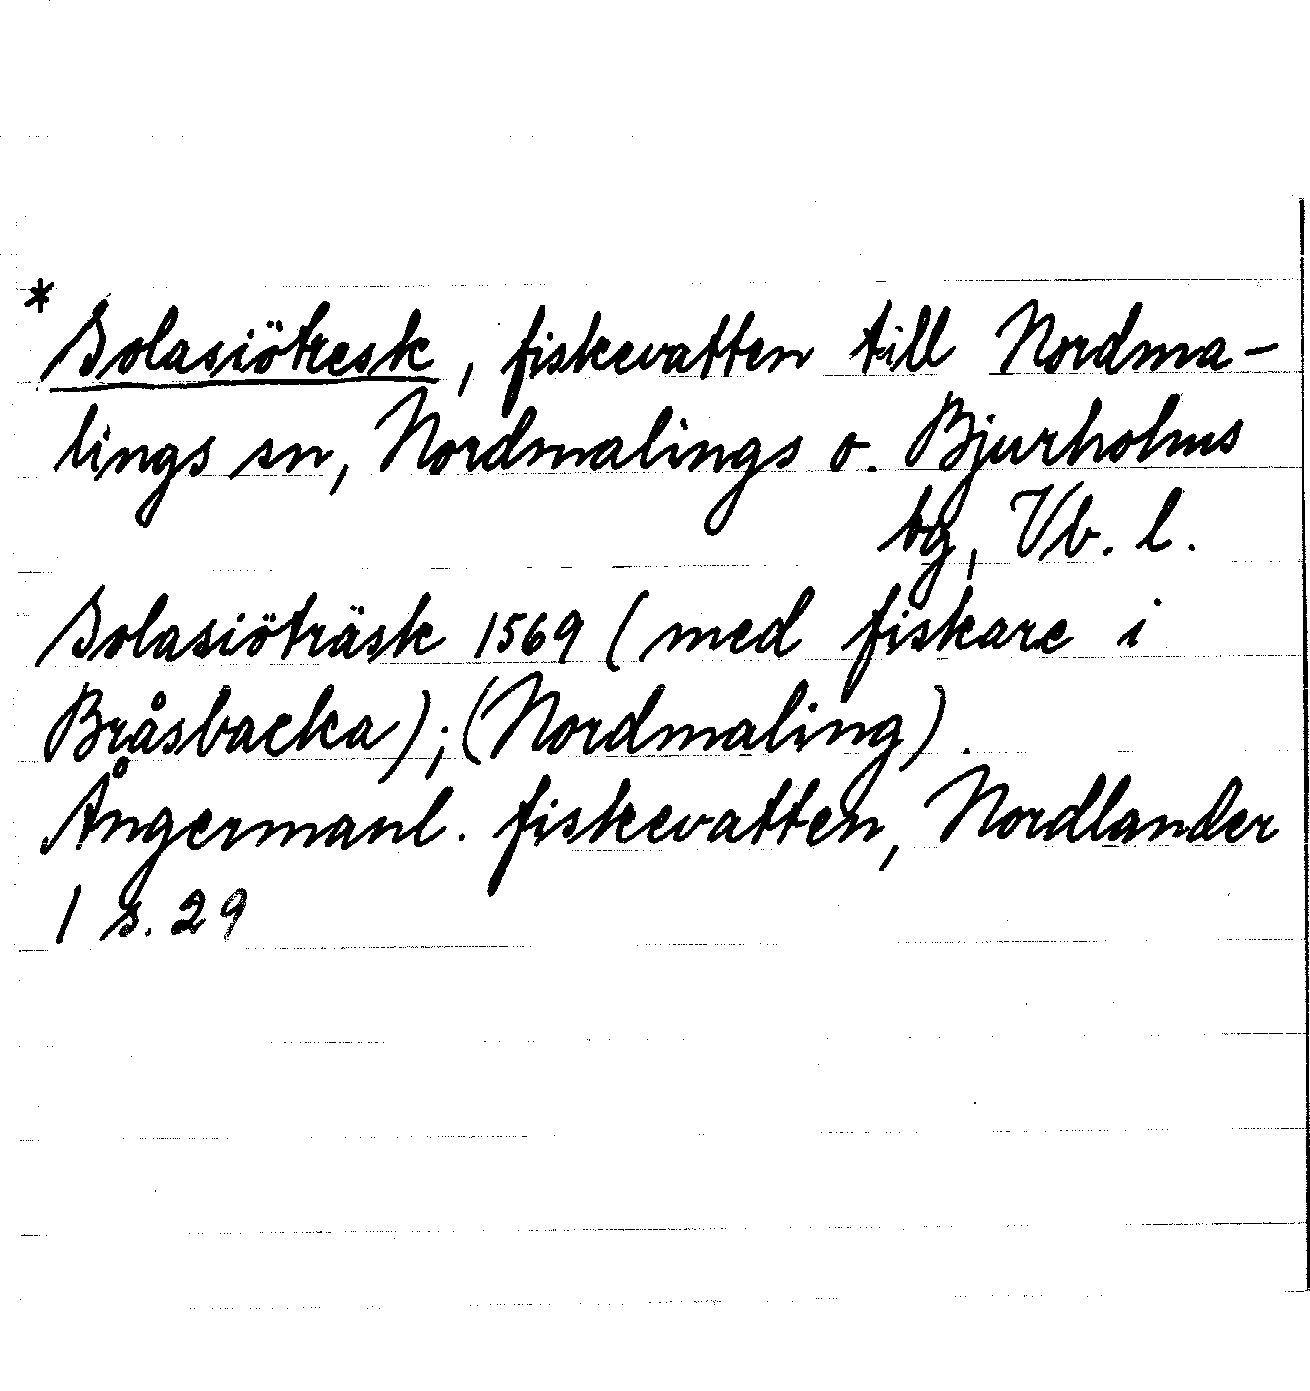 * Solasiötresk, fiskevatten till Nordma-
lings sn, Nordmalings o. Bjurholms
tg, Vb. l.
Solasiöträsk 1569 (med fiskare i
Bråsbacka); (Nordmaling).
Ångermanl. fiskevatten, Nordlander
1 s. 29